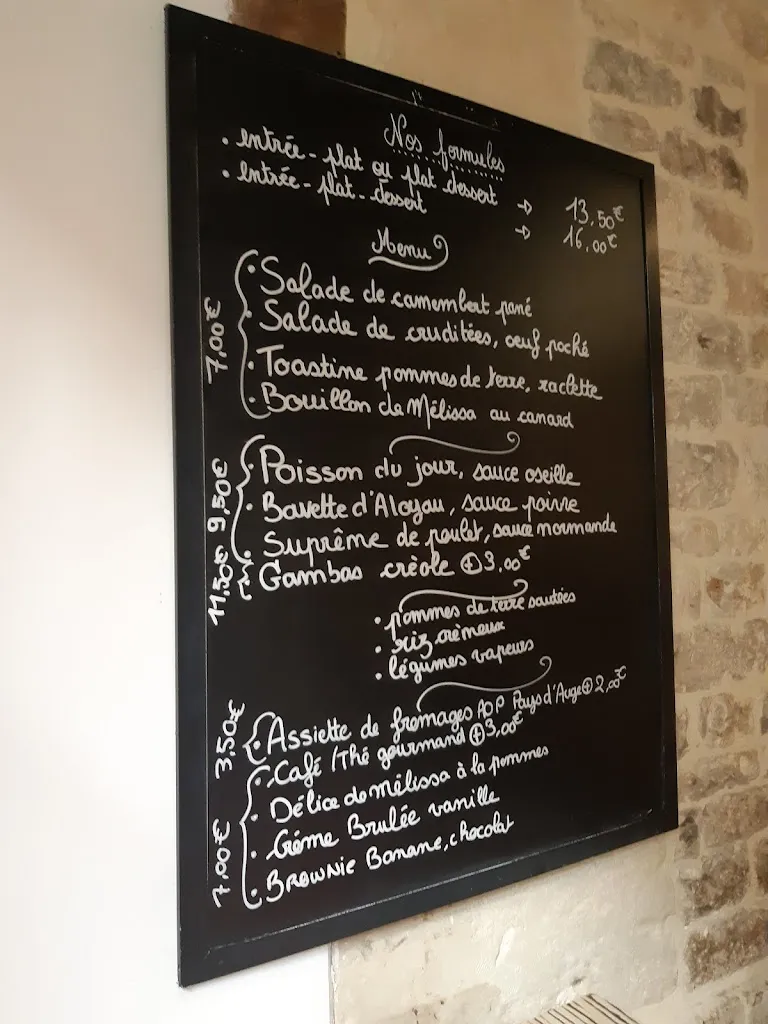 Nos formules
• entrée - plat ou plat dessert → 13,50€
• entrée - plat - dessert → 16,00€
Menu
7,00€
• Salade de camembert pané
• Salade de crudités, oeuf poché
• Toastine pommes de terre, raclette
• Bouillon de Mélissa au canard
9,50€
• Poisson du jour, sauce oseille
• Bavette d'Aloyau, sauce poivre
• Suprême de poulet, sauce normande
11,50€
Gambas créole ⊕3,00€
• pommes de terre sautées
• riz crèmeux
• légumes vapeurs
3,50€
• Assiette de fromages AOP Pays d'Auge ⊕2,00€
7,00€
• Café /Thé gourmand ⊕3,00€
• Délice de mélissa à la pommes
• Crème Brulée vanille
• Brownie Banane, chocolat